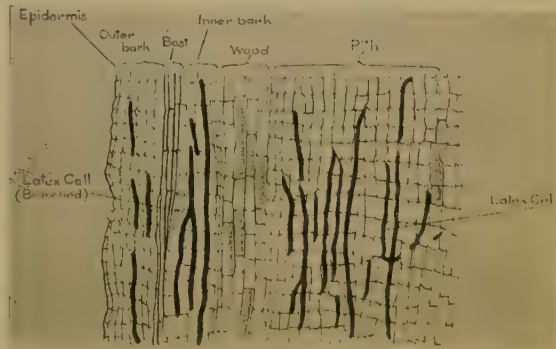 Epidermis
Outer bark
Bast
Inner bark
Wood
Pith
Latex Cell
(Branched)
Latex Cell